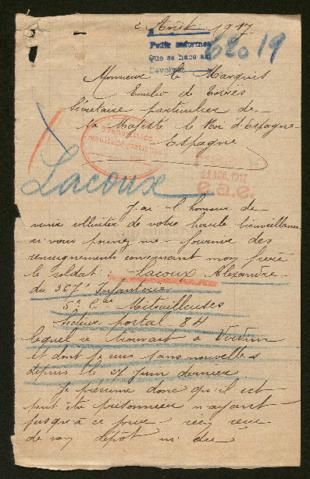 2 Août 1917
Pedir informes
Que se hace
62019
Monsieur le Marquis
Emilio de Torrès
Secrétaire particulier de
Sa Majesté le Roi d'Espagne
Espagne
Lacoux
1917
J'ai l'honneur de
venir solliciter de votre haute bienveillance
si vous pouvez me fournir des
renseignements concernant mon frère
le Soldat Lacoux Alexandre
du 367e Infanterie
5e Cie Mitrailleuses
Secteur postal 84
lequel se trouvait à
et dont je suis sans nouvelles
depuis le Juin dernier
Je présume donc qu'il est
peut être prisonnier n'ayant
jusqu'à ce jour rien reçu
de son dépôt ni du